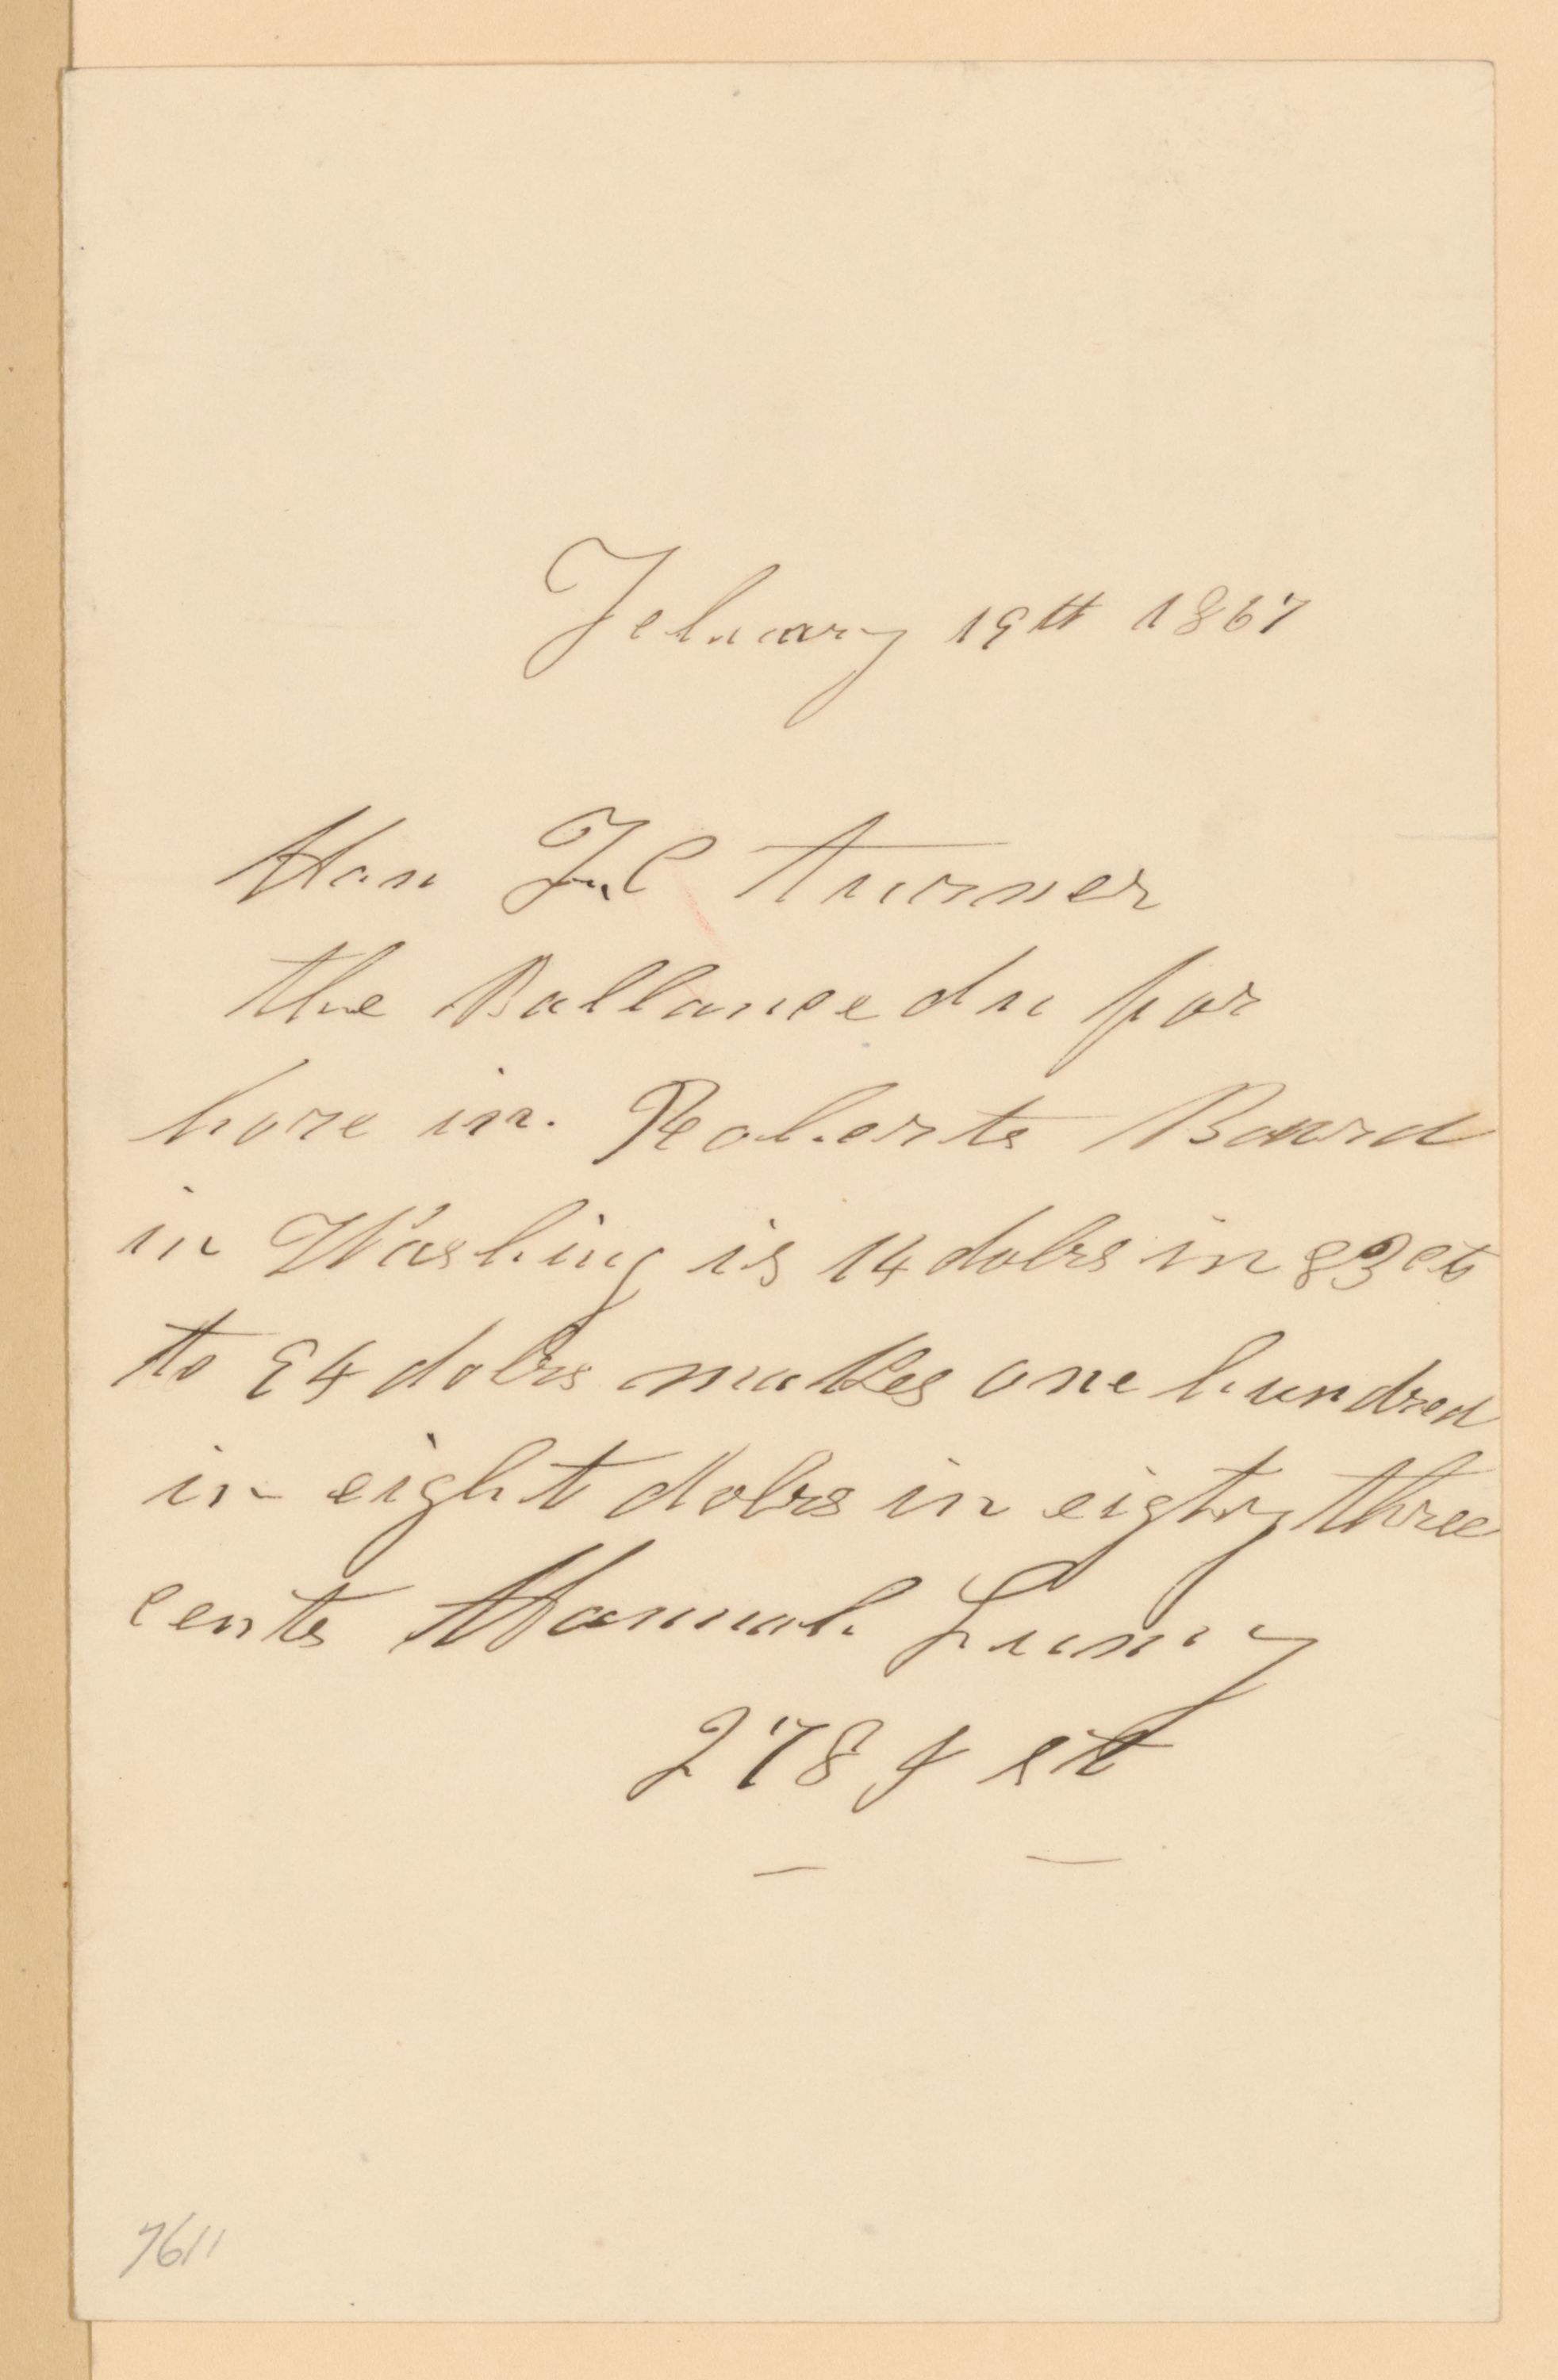 February 19th 1867
Hon T.C turner
the Ballance du for
hore in. Roberts Board
in Washing is 14 dolrs in 83 cts
to 94 dolrs makes one hundred
in eight dolrs in eigty three
cents Hannah Luny
278 F st
7611